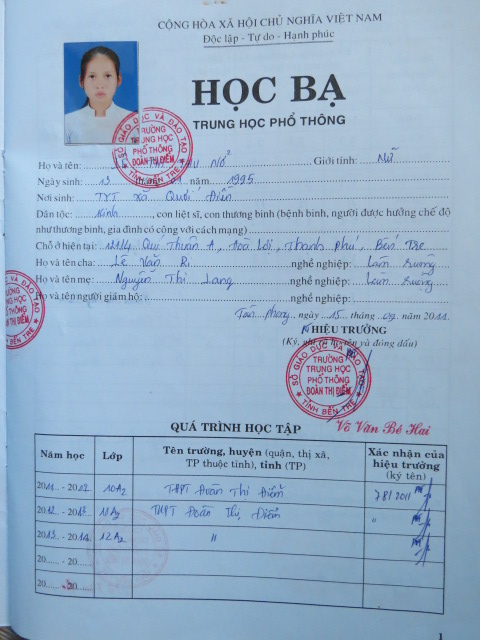 CỘNG HÒA XÃ HỘI CHỦ NGHĨA VIỆT NAM
Độc lập - Tự do - Hạnh phúc
HỌC BẠ
TRUNG HỌC PHỔ THÔNG
SỞ GIÁO DỤC VÀ ĐÀO TẠO
TRƯỜNG
TRUNG HỌC
PHỔ THÔNG
ĐOÀN THỊ ĐIỂM
TỈNH BẾN TRE
Họ và tên: Nở Giới tính: Nữ
Ngày sinh: 13 tháng 01 năm 1995
Nơi sinh: TYT xã Quới Điền
Dân tộc: Kinh, con liệt sĩ, con thương binh (bệnh binh, người được hưởng chế độ
như thương binh, gia đình có công với cách mạng)
Chỗ ở hiện tại: 111/4 Quí Thuận A, Hoà Lợi, Thạnh Phú, Bến Tre
Họ và tên cha: Lê Văn R. nghề nghiệp: Làm ruộng
Họ và tên mẹ: Nguyễn Thị Lang nghề nghiệp: Làm ruộng
Họ và tên người giám hộ:
Tân Phong, ngày 15 tháng 09 năm 2011
HIỆU TRƯỞNG
(Ký, ghi rõ họ tên và đóng dấu)
SỞ GIÁO DỤC VÀ ĐÀO TẠO
TRƯỜNG
TRUNG HỌC
PHỔ THÔNG
ĐOÀN THỊ ĐIỂM
TỈNH BẾN TRE
Võ Văn Bé Hai
QUÁ TRÌNH HỌC TẬP
Năm học Lớp Tên trường, huyện (quận, thị xã, TP thuộc tỉnh), tỉnh (TP) Xác nhận của hiệu trưởng (ký tên)
2011 - 2012 10A2 THPT Đoàn Thị Điểm
2012 - 2013 11A2 THPT Đoàn Thị Điểm "
2013 - 2014 12A2 "
20 - 20
20 - 20
1